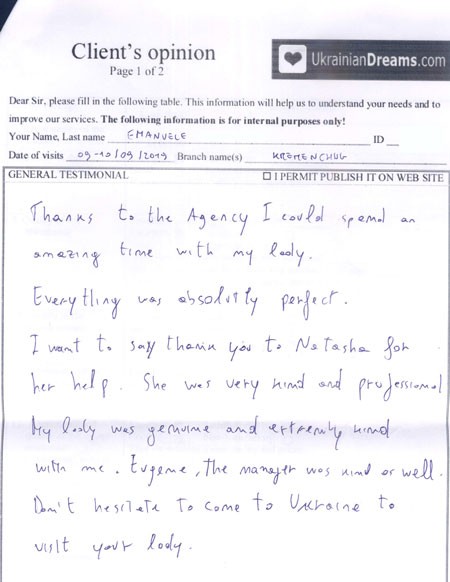 Client's opinion
Page 1 of 2
UkrainianDreams.com
Dear Sir, please fill in the following table. This information will help us to understand your needs and to
improve our services. The following information is for internal purposes only!
Your Name, Last name EMANUELE ID
Date of visits 09-10/09/2019 Branch name(s) KREMENCHUG
GENERAL TESTIMONIAL ☐ I PERMIT PUBLISH IT ON WEB SITE
Thanks to the Agency I could spend an
amazing time with my lady.
Everything was absolutly perfect.
I want to say thank you to Natasha for
her help. She was very kind and professional
My lady was genuine and extremly kind
with me. Eugene, the manager was kind as well.
Don't hesitate to come to Ukraine to
visit your lady.